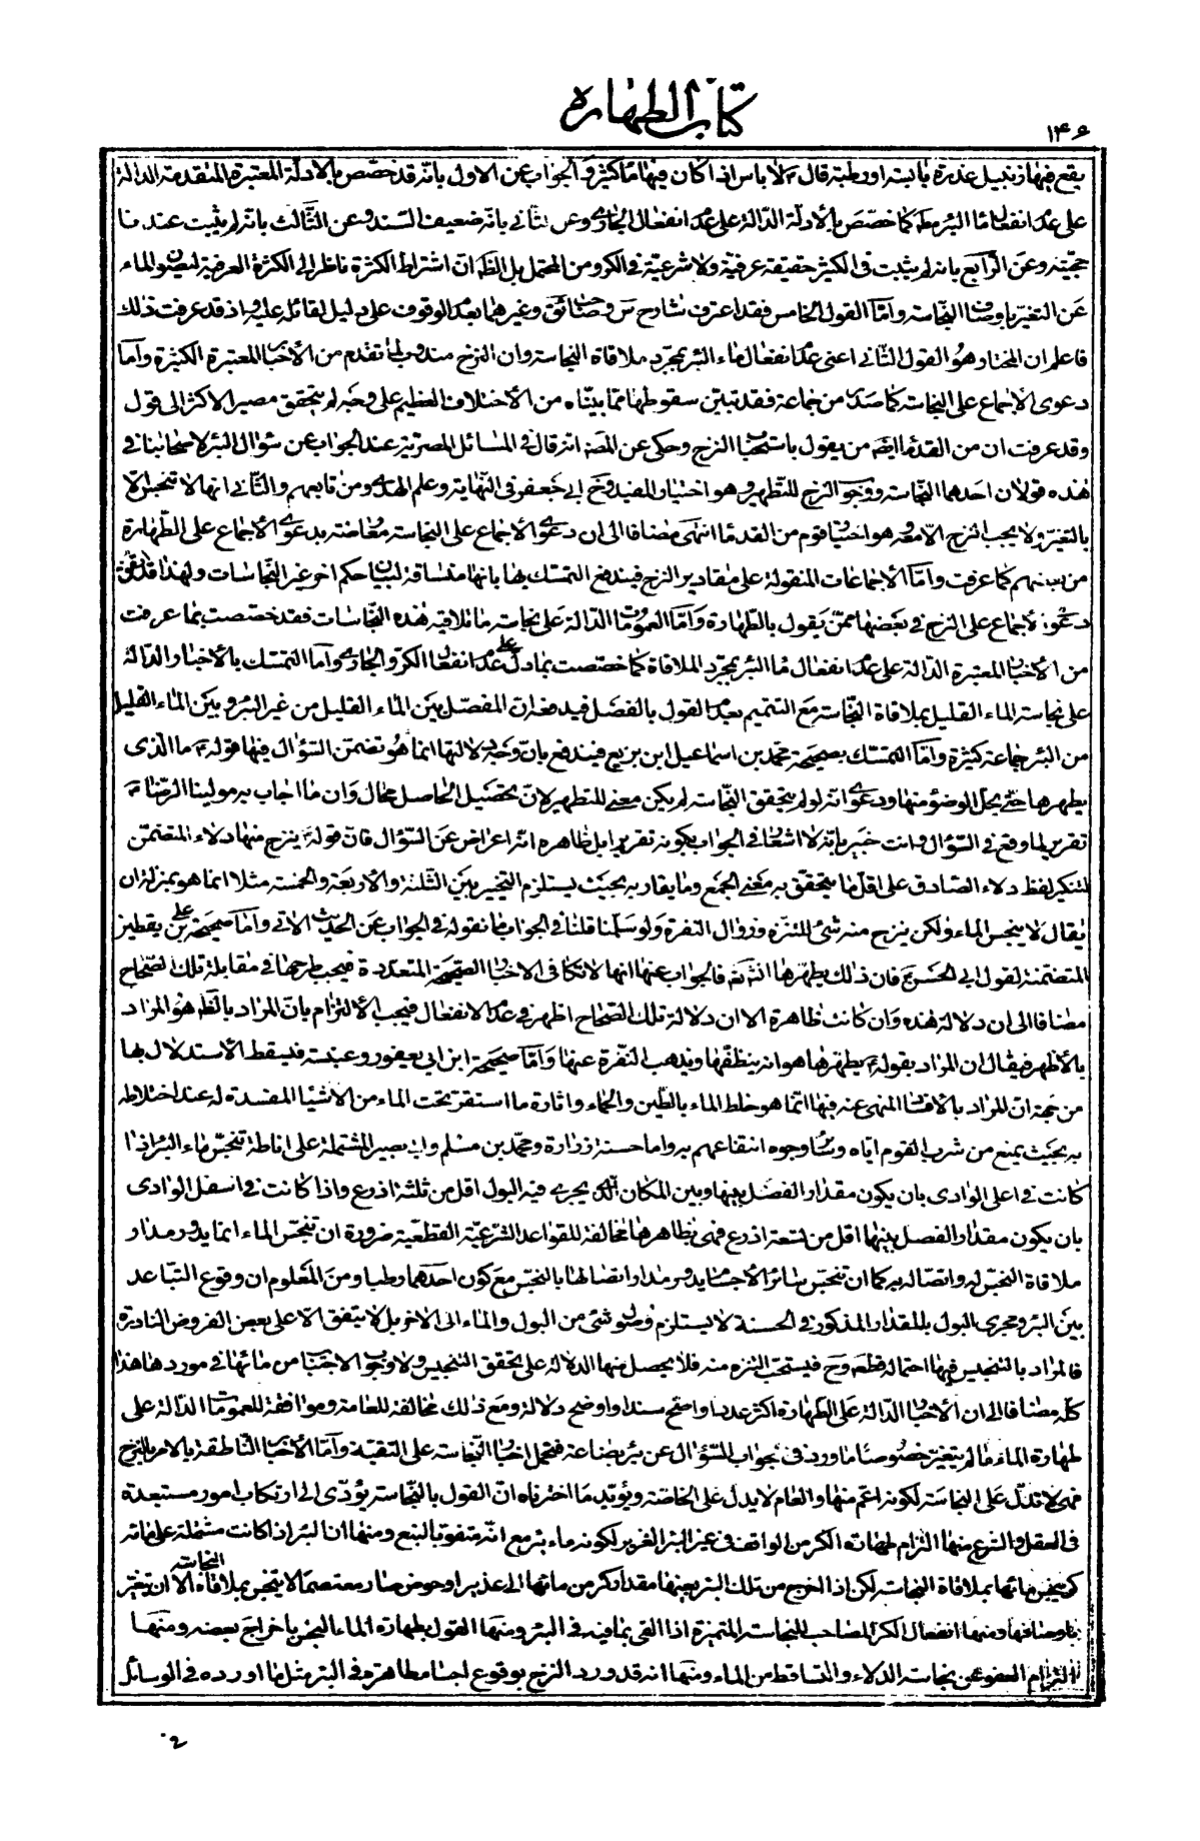 كتاب الطهارة
١٤٦
يقع فيها زنبيل عذرة يابسة او رطبة قال ع لا باس اذا كان فيها ماء كثير و الجواب عن الاول بانه قد خصص بالادلة المعتبرة المتقدمة الدالة
على عدم انفعال ماء البئر مط كما خصص بالأدلة الدالة على عدم انفعال الجاري وعن الثاني بانه ضعيف السند وعن الثالث بانه لم يثبت عندنا
حجيته وعن الرابع بانه لم يثبت في الكثير حقيقة عرفية ولا شرعية في الكر ومن المحتمل بل الظ ان اشتراط الكثرة ناظر الى الكثرة العرفية لصون الماء
عن التغير باوصاف النجاسة وامّا القول الخامس فقد اعترف شارح س وصاحب ئق وغيرهما بعدم الوقوف على دليل لقائله عليه اذ قد عرفت ذلك
فاعلم ان المختار هو القول الثاني اعنى عدم انفعال ماء البئر بمجرّد ملاقاة النجاسة وان النزح مندوب لما تقدم من الأخبار المعتبرة الكثيرة وأما
دعوى الإجماع على النجاسة كما صدر من جماعة فقد تبيّن سقوطها مما بيّناه من الأختلاف العظيم على وجه لم يتحقق مصير الاكثر الى قول
وقد عرفت ان من القدماء ايضا من يقول باستحباب النزح وحكى عن المصنف انه قال في المسائل المصرية عند الجواب عن سؤال البئر لاصحابنا في
هذه قولان احدهما النجاسة ووجوب النزح للتطهير وهو اختيار المفيد و خ ابي جعفر في النهاية وعلم الهدى ومن تابعهم والثاني انها لا تنجس الا
بالتغير ولا يجب النزح الا معه وهو اختيار قوم من القدماء انتهى مضافا الى ان دعوى الأجماع على النجاسة معارضة بدعوى الأجماع على الطهارة
من بعضهم كما عرفت وامّا الأجماعات المنقولة على مقادير النزح فيندفع التمسك بها بانها مساقة لبيان حكم اخر غير النجاسات ولهذا قد يتفق
دعوى الإجماع على النزح في بعضها ممّن يقول بالطهارة وأمّا العمومات الدالة على نجاسة ما تلاقيه هذه النجاسات فقد خصصت بما عرفت
من الأخبار المعتبرة الدالة على عدم انفعال ماء البئر بمجرّد الملاقاة كما خصصت بما دل على عدم انفعال الكر والجاري وأما التمسك بالأخبار الدالة
على نجاسة الماء القليل بملاقاة النجاسة مع التتميم بعدم القول بالفصل فيدفعه ان المفصل بين الماء القليل من غير البئر وبين الماء القليل
من البئر جماعة كثيرة وأما التمسك بصحيحة محمد بن اسماعيل ابن بزيع فيندفع بان وجه دلالتها انما هو تضمن السؤال فيها قوله ما الذي
يطهرها حتى يحل الوضوء منها ودعوى انه لو لم يتحقق النجاسة لم يكن معنى للتطهير لان تحصيل الحاصل محال وان ما اجاب به مولينا الرضا ع
تقرير لما وقع في السؤال وانت خبير بانه لا اشعار في الجواب بكونه تقريرا بل ظاهره انه اعراض عن السؤال فان قوله ع ينزح منها دلاء المتضمّن
لتنكير لفظ دلاء الصادق على اقل ما يتحقق به معنى الجمع وما يقاربه بحيث يستلزم التخيير بين الثلثة والاربعة والخمسة مثلا انما هو بمنزلة ان
يقال لا ينجس الماء ولكن ينزح منه شئ للتنزه وزوال النفرة ولو سلّمنا قلنا في الجواب ما نقوله في الجواب عن الحديث الاتي وأما صحيحة علي بن يقطين
المتضمنة لقول ابي الحسن ع فان ذلك يطهرها انش تعالى فالجواب عنها انها لا تكافئ الاخبار الصحيحة المتعددة فيجب طرحها في مقابلة تلك الصّحاح
مضافا الى ان دلالة هذه وان كانت ظاهرة الا ان دلالة تلك الصّحاح اظهر في عدم الانفعال فيجب الألتزام بان المراد بالظ هو المراد
بالأظهر فيقال ان المراد بقوله ع يطهرها هو انه ينظفها ويذهب النفرة عنها وأمّا صحيحة ابن ابي يعفور وعنبسة فيسقط الأستدلال بها
من جهة ان المراد بالافساد المنهى عنه فيها انّما هو خلط الماء بالطين والحماء واثارة ما استقر تحت الماء من الاشياء المفسدة له عند اختلاطه
به بحيث يمنع من شرب القوم ايّاه وسائر وجوه انتفاعهم به واما حسنة زرارة ومحمد بن مسلم وابي بصير المشتملة على اناطة تنجس ماء البئر اذا
كانت في اعلى الوادى بان يكون مقدار الفصل بينها وبين المكان الذي يجرى فيه البول اقل من ثلثة اذرع واذا كانت في اسفل الوادى
بان يكون مقدار الفصل بينهما اقل من تسعة اذرع فهي بظاهرها مخالفة للقواعد الشرعيّة القطعية ضرورة ان تنجس الماء انما يدور مدار
ملاقاة النجس له واتصاله به كما ان تنجس سائر الأجسام يدور مدار اتصالها بالنجس مع كون احدهما رطبا ومن المعلوم ان وقوع التباعد
بين البئر ومجرى البول بالمقدار المذكور في الحسنة لا يستلزم وصول شئ من البول والماء الى الاخر بل لا يتفق الّا على بعض الفروض النادرة
فالمراد بالتنجيس فيها احتماله قطعا وح فيستحب التنزه منه فلا يحصل منها الدلالة على تحقق التنجيس ولا وجوب الاجتناب من مائها في موردها هذا
كلّه مضافا الى ان الأخبار الدالة على الطهارة اكثر عددا واصح سندا واوضح دلالة ومع ذلك مخالفة للعامة وموافقة للعمومات الدالة على
طهارة الماء ما لم يتغير خصوصا ما ورد في جواب السؤال عن بئر بضاعة فتحمل اخبار النجاسة على التقيّة وأمّا الأخبار الناطقة بالامر بالنزح
فهي لا تدلّ على النجاسة لكونه اعم منها والعام لا يدل على الخاص ويؤيد ما اخترناه انّ القول بالنجاسة يؤدّى الى ارتكاب امور مستبعدة
في العقل والشرع منها التزام طهارة الكر من الواقف في غير البئر الغزير لكونه ماء بئر مع انّه متقو بالنبع ومنها ان البئر اذا كانت مشتملة على مائة
كر ينجس مائها بملاقاة النجاسة لكن اذا اخرج من تلك البئر بعينها مقدار كر من مائها الى غدير او حوض صار معتصما لا ينجس بملاقاة النجاسة الا ان تغير
باوصافها ومنها انفعال الكر المصاحب للنجاسة المتميزة اذا القي بما فيه في البئر ومنها القول بطهارة الماء النجس باخراج بعضه ومنها
التزام العفو عن نجاسة الدلاء والمتساقط من الماء ومنها انه قد ورد النزح بوقوع اجسام طاهرة في البئر مثل ما اورده في الوسائل